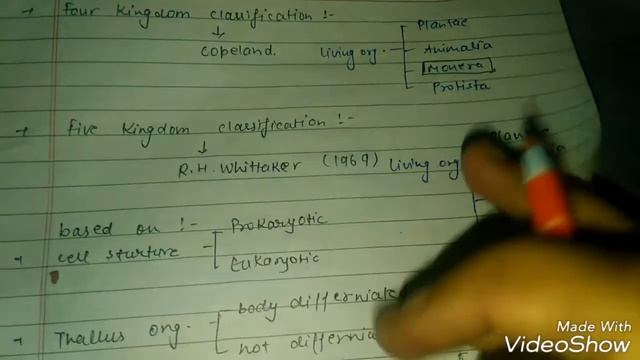 → Four Kingdom classification :-
↓
Copeland.
Living org.
Plantae
Animalia
Monera
Protista
→ Five Kingdom classification :-
↓
R.H. Whittaker (1969) Living org
based on :-
→ cell sturture
Prokaryotic
Eukaryotic
→ Thallus org.
body differniate
not differnia
Made With
VideoShow